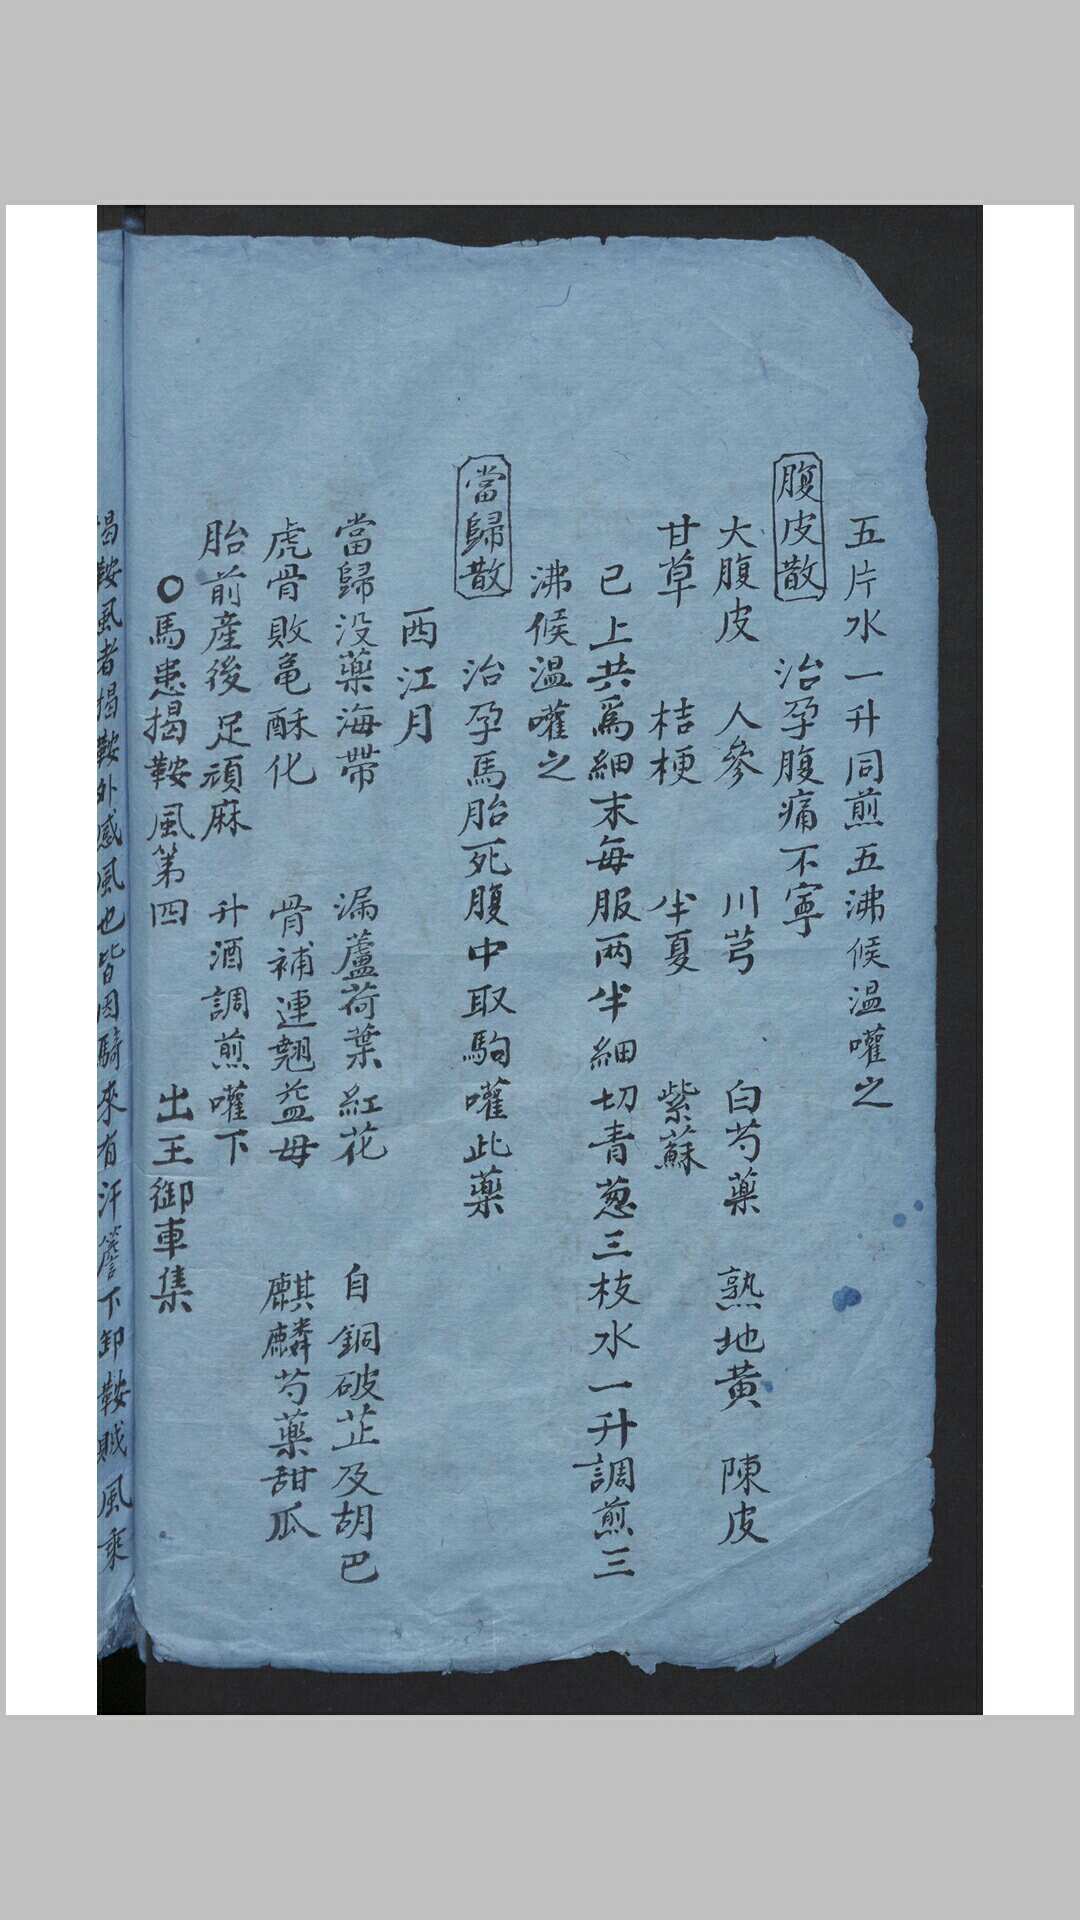 五片水一升同煎五沸候温嚾之
腹皮散 治孕腹痛不寧
大腹皮 人參 川芎 白芍藥 熟地黃 陳皮
甘草 桔梗 半夏 紫蘇
已上共爲細末每服两半細切青葱三枝水一升調煎三
沸候温嚾之
當歸散 治孕馬胎死腹中取駒嚾此藥
西江月
當歸没藥海帶 漏蘆荷葉紅花 自銅破芷及胡巴
虎骨敗亀酥化 骨補連翹益母 麒麟芍藥甜瓜
胎前産後足頑麻 升酒調煎嚾下
○馬患揭鞍風第四 出王御車集
揭鞍風者揭鞍外感風也皆因騎來有汗簷下卸鞍賊風乘